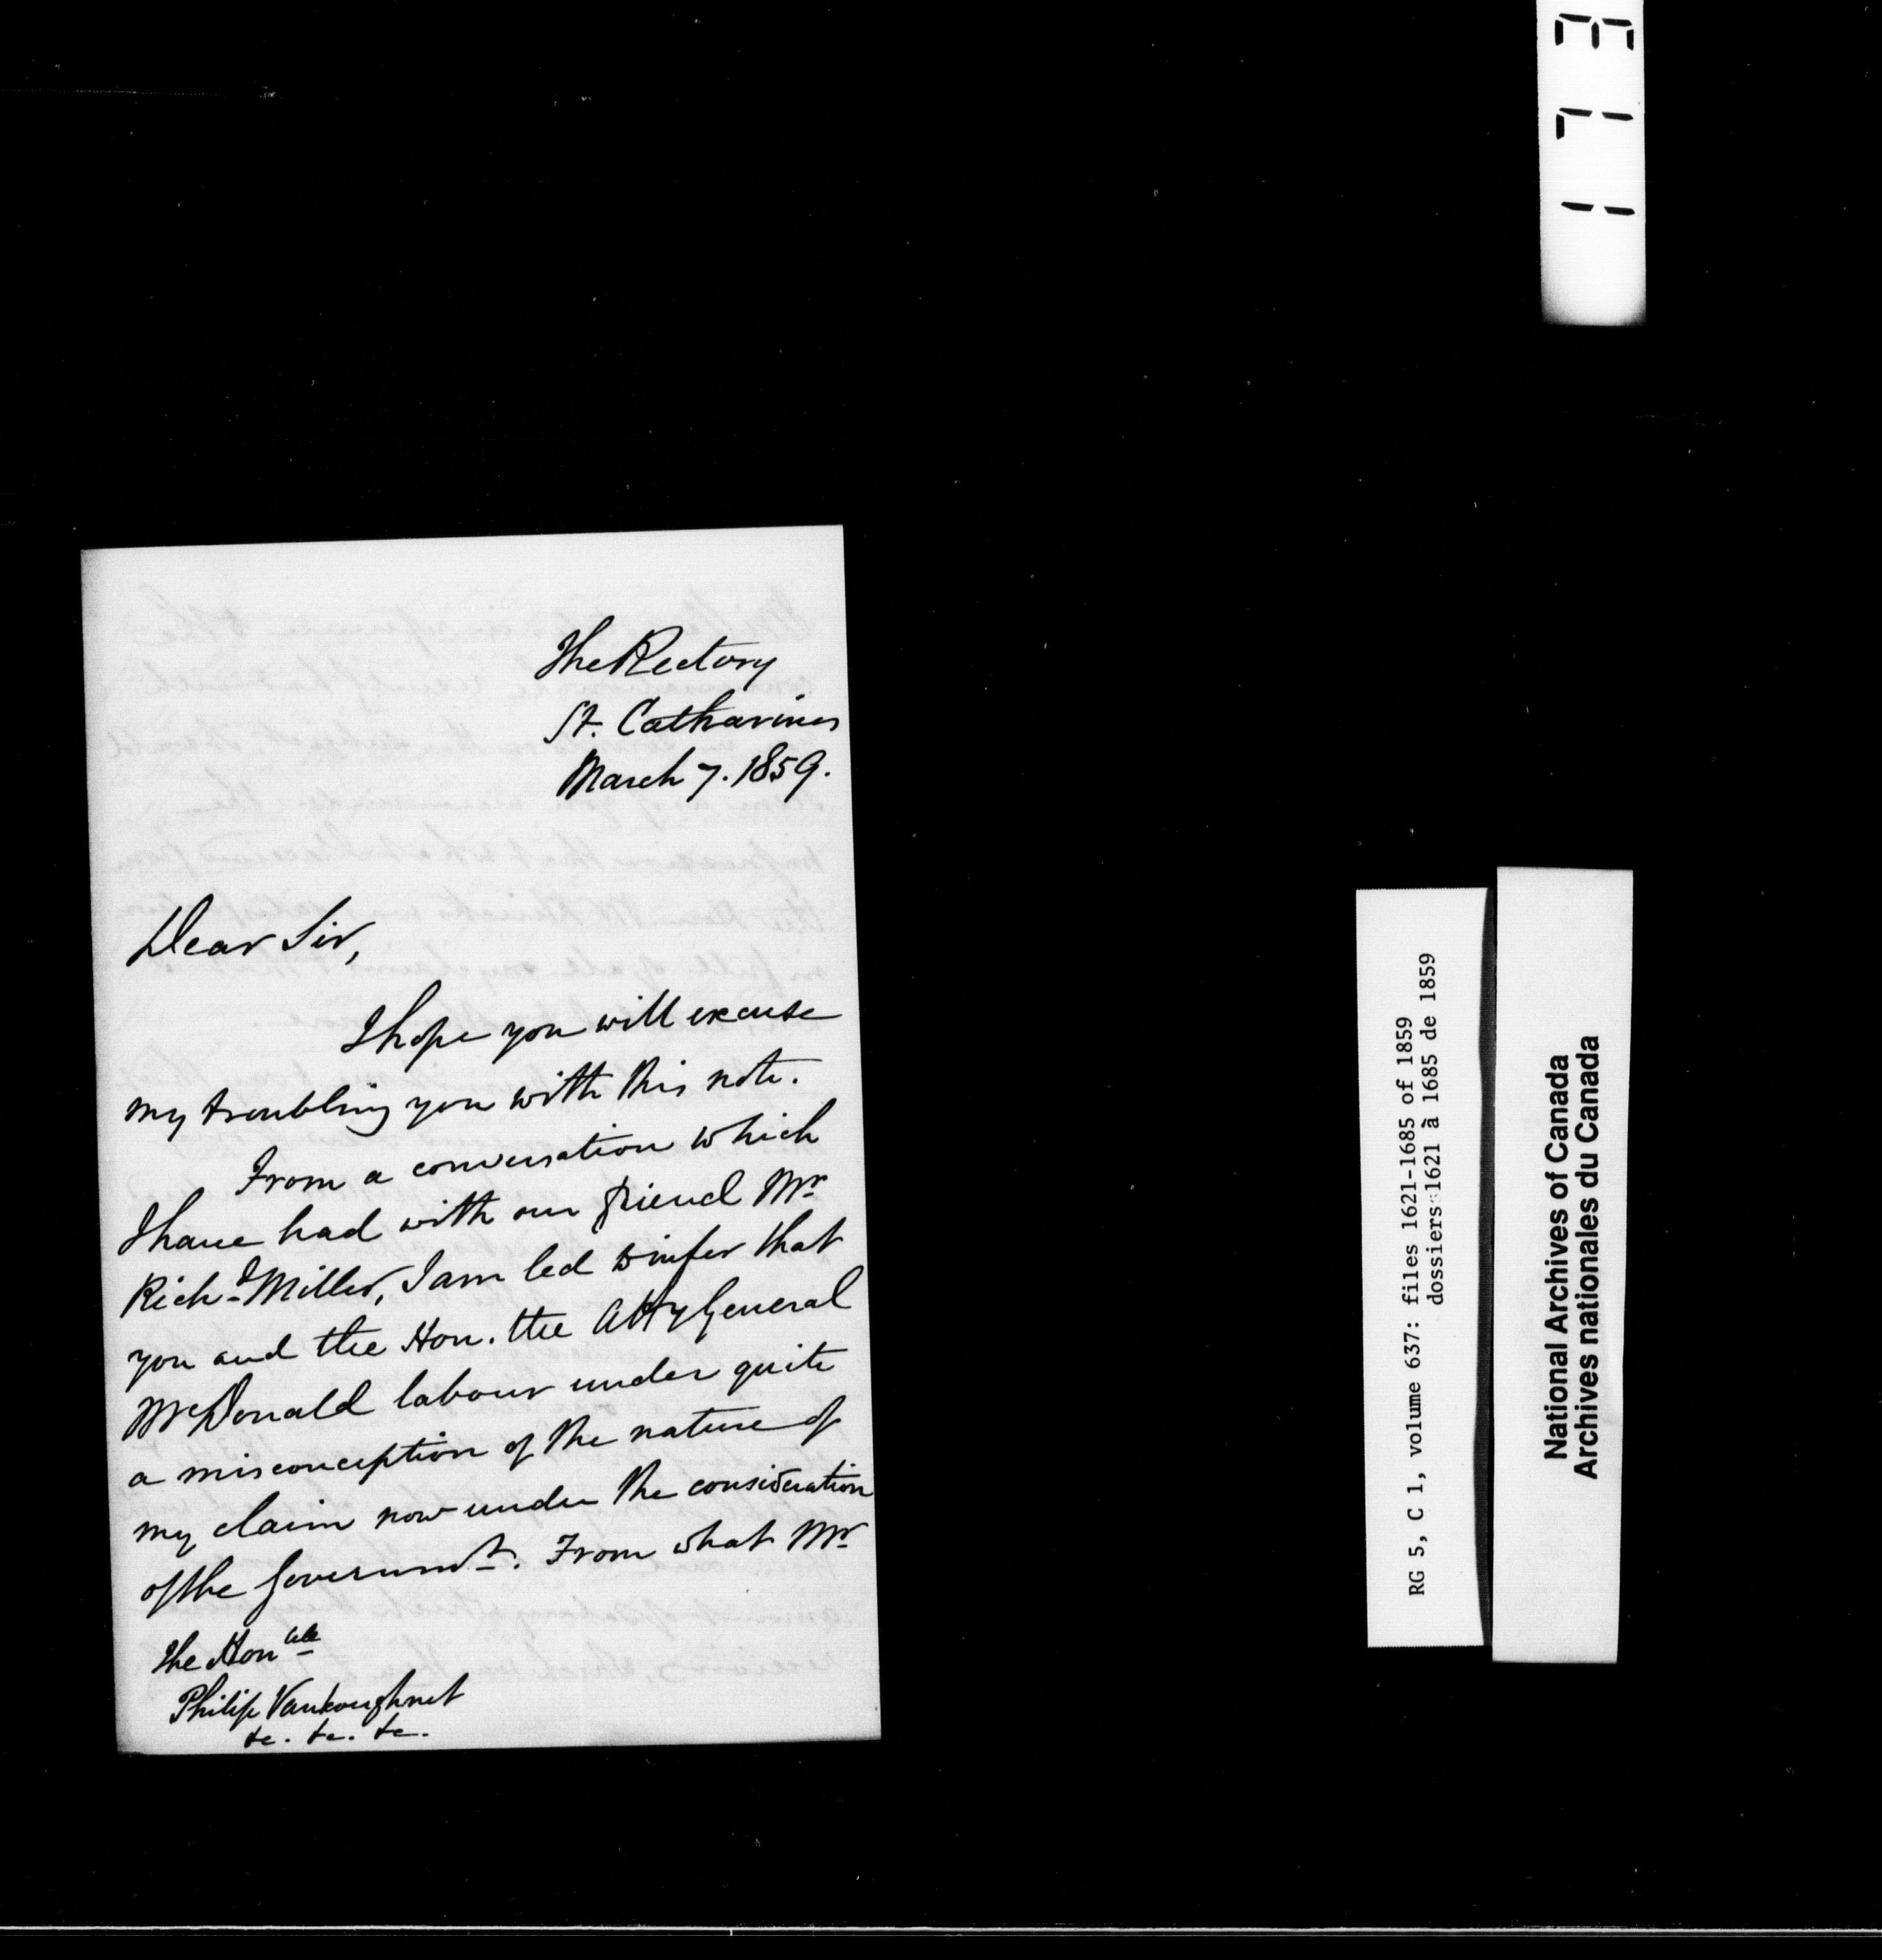 The Rectory
St. Catharines
March 7. 1859.
Dear Sir,
I hope you will excuse
my troubling you with this note.
From a conversation which
I have had with our friend Mr
Richd Miller, I am led to infer that
you and the Hon. the Atty General
McDonald labour under quite
a misconception of the nature of
my claim now under the consideration
of the Governmt. From what Mr
The Honble
Philip Vankoughnet
&c. &c. &c.
173
RG 5, C 1, volume 637: files 1621-1685 of 1859
dossiers 1621 à 1685 de 1859
National Archives of Canada
Archives nationales du Canada